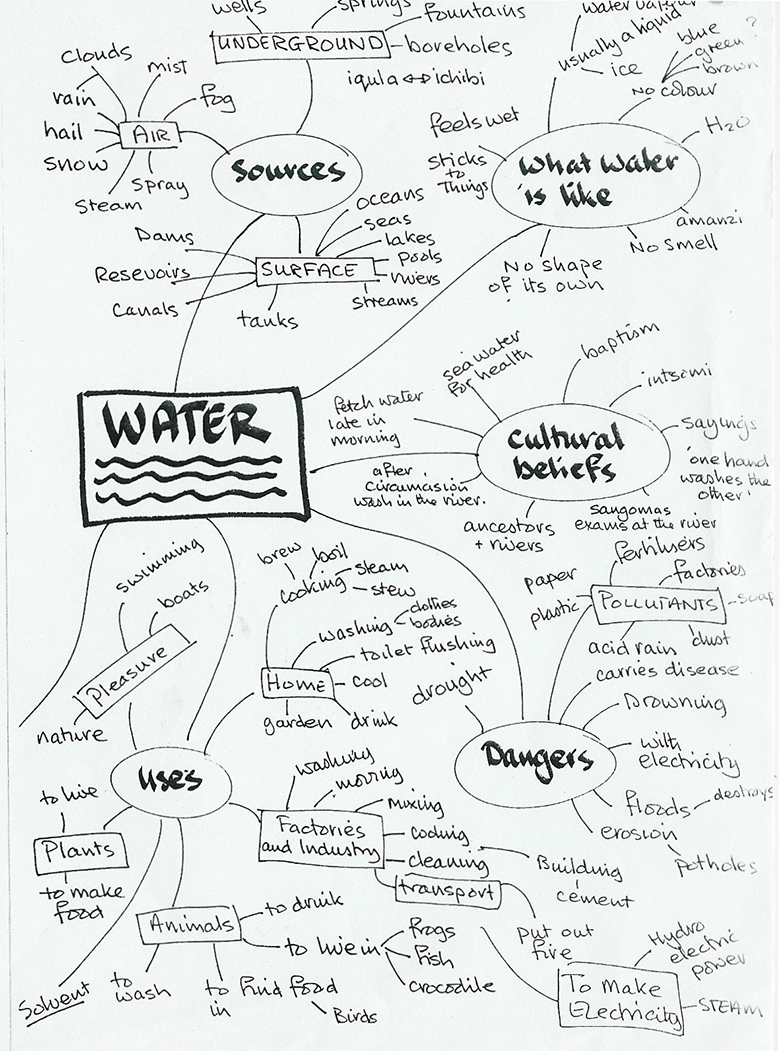 wells
springs
fountains
UNDERGROUND
boreholes
iqula ↔ ichibi
clouds
mist
rain
fog
AIR
hail
snow
Spray
Steam
Sources
oceans
seas
lakes
pools
rivers
streams
SURFACE
Dams
Resevoirs
Canals
tanks
water vapour
usually a liquid
ice
blue
green?
brown
No colour
H2O
feels wet
sticks
to
Things
What water
is like
amanzi
No smell
No shape
of its own
WATER
sea water
for health
baptism
intsomi
fetch water
late in
morning
Cultural
beliefs
sayings
'one hand
washes the
other'
after
circumcision
wash in the river.
ancestors
+ rivers
Sangomas
exams at the river
swimming
boats
Pleasure
nature
brew
boil
steam
cooking
stew
clothes
washing
bodies
toilet flushing
HOME
cool
garden
drink
fertilisers
paper
factories
plastic
POLLUTANTS
soap
acid rain
dust
carries disease
drought
Drowning
Dangers
with
electricity
floods
destroys
erosion
potholes
uses
to live
Plants
to make
food
washing
moving
mixing
Factories
and Industry
cooling
cleaning
transport
Building
cement
put out
fire
Animals
to drink
to live in
frogs
fish
crocodile
to
wash
to find food
in
Birds
Solvent
To Make
Electricity
Hydro
electric
power
STEAM